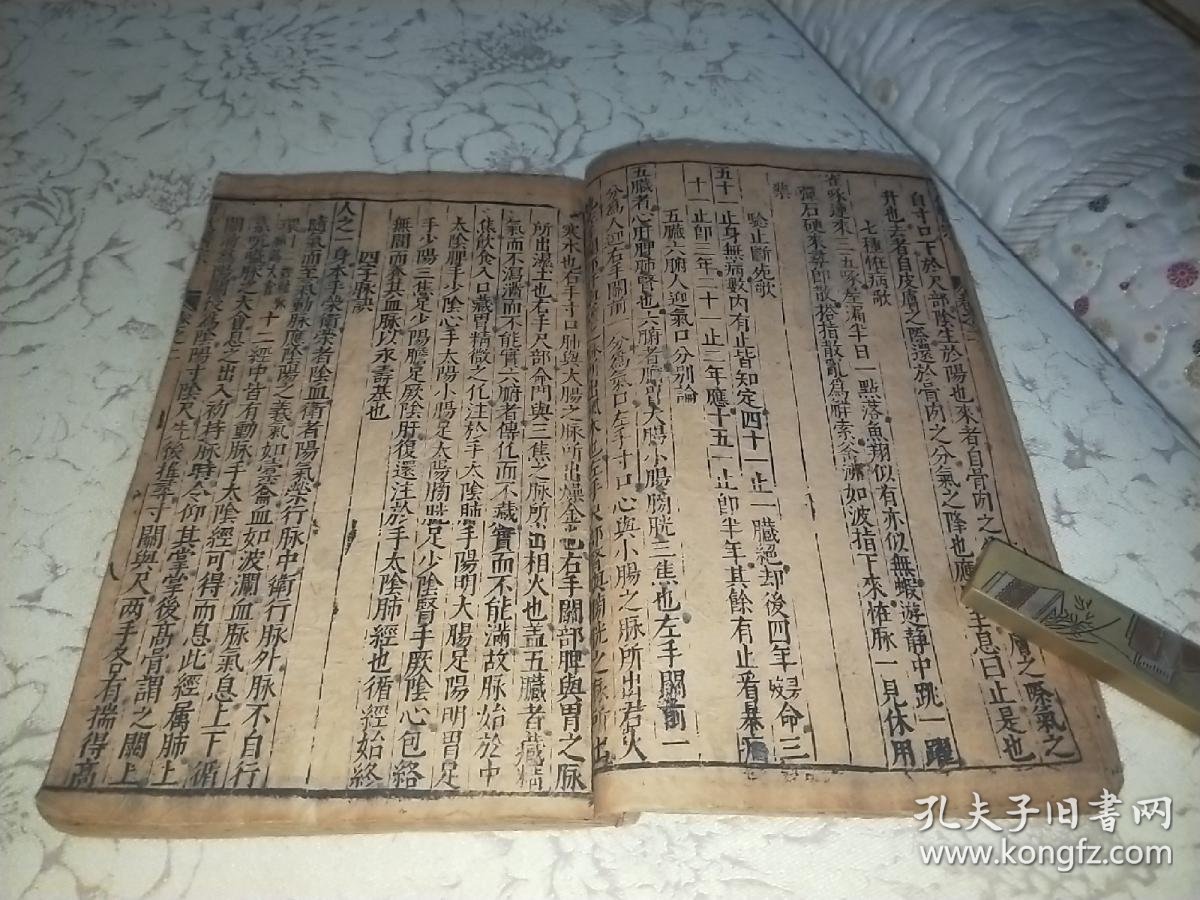 自寸口下於尺部陰生於陽也來者自骨肉之
膚之際氣之
升也去者自皮膚之際還於骨肉之分氣之降也應
息曰止是也
七種怪病歌
雀啄連來三五啄屋漏半日一點落魚翔似有亦似無蝦遊靜中跳一躍
彈石硬來尋即散搭指散亂為解索
如波指下來怪脉一見休用
藥
驗止斷死歌
五十一止身無病數內有止皆知定四十一止一臟絕却後四年
命三
十一止即三年二十一止二年應十五一止即半年其餘有止看暴
五臟六腑人迎氣口分別論
五臟者心肝脾肺腎也六腑者膽胃大腸小腸膀胱三焦也左手關前一
分為人迎右手關前一分為氣口左手寸口心與小腸之脉所出君火
寒水也右手寸口肺與大腸之脉所出燥金也右手關部脾與胃之脉
所出濕土也右手尺部命門與三焦之脉所出相火也盖五臟者藏精
氣而不瀉滿而不能實六腑者傳化而不藏實而不能滿故脉始於中
焦飲食入口藏胃精微之化注於手太陰肺手陽明大腸足陽明胃足
太陰脾手少陰心手太陽小腸足太陽膀胱足少陰腎手厥陰心包絡
手少陽三焦足少陽膽足厥陰肝復還注於手太陰肺經也循經始終
無間而養其血脉以永壽基也
四言脉訣
人之一身本乎榮衛榮者陰血衛者陽氣榮行脉中衛行脉外脉不自行
隨氣而至氣動脉應陰陽之義氣如橐籥血如波瀾血脉氣息上下循
環十二經中皆有動脉手太陰經可得而息此經属肺上
脉之大會息之出入初持脉時令仰其掌掌後高骨謂之關上
為陰陽寸陰尺先後推尋寸關與尺兩手各有揣得高
孔夫子旧書网
www.kongfz.com